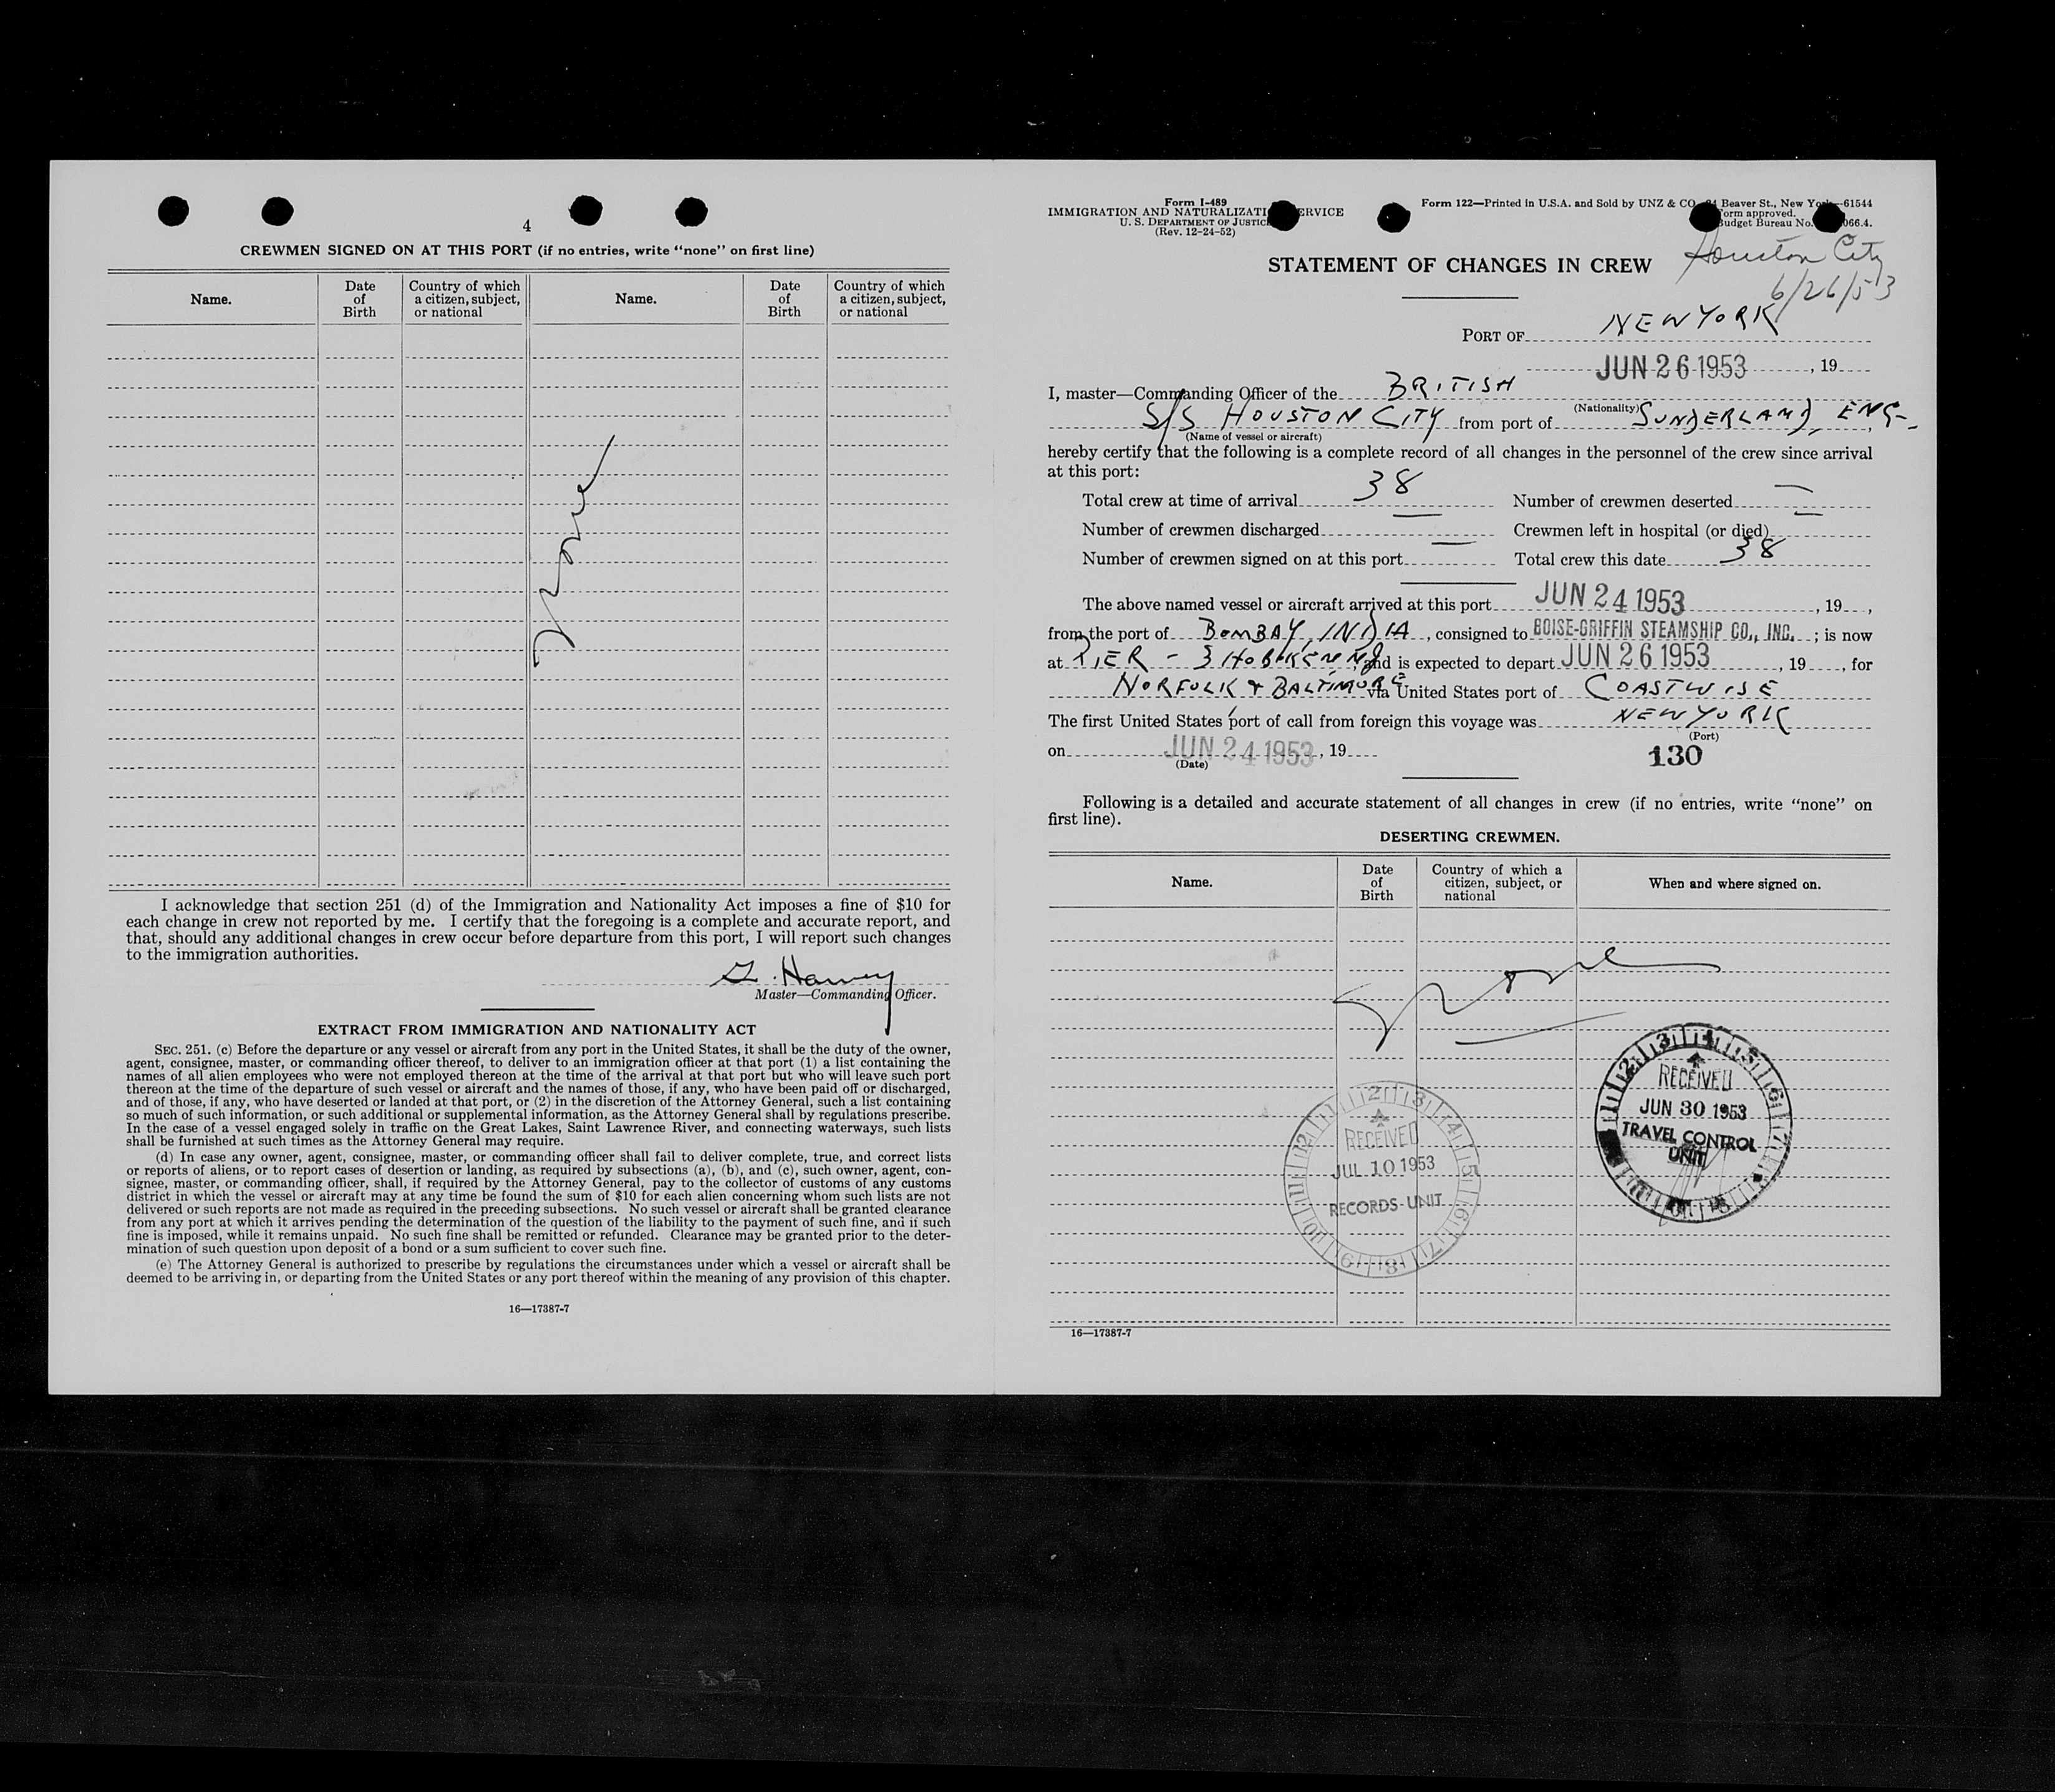 4
CREWMEN SIGNED ON AT THIS PORT (if no entries, write “none” on first line)
Name. Date of Birth Country of which a citizen, subject, or national Name. Date of Birth Country of which a citizen, subject, or national
None
I acknowledge that section 251 (d) of the Immigration and Nationality Act imposes a fine of $10 for
each change in crew not reported by me. I certify that the foregoing is a complete and accurate report, and
that, should any additional changes in crew occur before departure from this port, I will report such changes
to the immigration authorities.
G. Harvey
Master—Commanding Officer.
EXTRACT FROM IMMIGRATION AND NATIONALITY ACT
SEC. 251. (c) Before the departure or any vessel or aircraft from any port in the United States, it shall be the duty of the owner,
agent, consignee, master, or commanding officer thereof, to deliver to an immigration officer at that port (1) a list containing the
names of all alien employees who were not employed thereon at the time of the arrival at that port but who will leave such port
thereon at the time of the departure of such vessel or aircraft and the names of those, if any, who have been paid off or discharged,
and of those, if any, who have deserted or landed at that port, or (2) in the discretion of the Attorney General, such a list containing
so much of such information, or such additional or supplemental information, as the Attorney General shall by regulations prescribe.
In the case of a vessel engaged solely in traffic on the Great Lakes, Saint Lawrence River, and connecting waterways, such lists
shall be furnished at such times as the Attorney General may require.
(d) In case any owner, agent, consignee, master, or commanding officer shall fail to deliver complete, true, and correct lists
or reports of aliens, or to report cases of desertion or landing, as required by subsections (a), (b), and (c), such owner, agent, con-
signee, master, or commanding officer, shall, if required by the Attorney General, pay to the collector of customs of any customs
district in which the vessel or aircraft may at any time be found the sum of $10 for each alien concerning whom such lists are not
delivered or such reports are not made as required in the preceding subsections. No such vessel or aircraft shall be granted clearance
from any port at which it arrives pending the determination of the question of the liability to the payment of such fine, and if such
fine is imposed, while it remains unpaid. No such fine shall be remitted or refunded. Clearance may be granted prior to the deter-
mination of such question upon deposit of a bond or a sum sufficient to cover such fine.
(e) The Attorney General is authorized to prescribe by regulations the circumstances under which a vessel or aircraft shall be
deemed to be arriving in, or departing from the United States or any port thereof within the meaning of any provision of this chapter.
16—17387-7
Form I-489
IMMIGRATION AND NATURALIZATI ERVICE
U. S. DEPARTMENT OF JUSTIC
(Rev. 12-24-52)
Form 122—Printed in U.S.A. and Sold by UNZ & CO. Beaver St., New Yor —61544
orm approved.
udget Bureau No. 066.4.
STATEMENT OF CHANGES IN CREW
Houston City
6/26/53
PORT OF NEW YORK
JUN 26 1953, 19
I, master—Commanding Officer of the BRITISH
(Nationality)
S/S HOUSTON CITY from port of SUNDERLAND, ENG-
(Name of vessel or aircraft)
hereby certify that the following is a complete record of all changes in the personnel of the crew since arrival
at this port:
Total crew at time of arrival 38 Number of crewmen deserted —
Number of crewmen discharged — Crewmen left in hospital (or died) —
Number of crewmen signed on at this port — Total crew this date 38
The above named vessel or aircraft arrived at this port JUN 24 1953, 19 ,
from the port of BOMBAY, INDIA, consigned to BOISE-GRIFFIN STEAMSHIP CO., INC. ; is now
at PIER - 3 HOBOKEN NJ and is expected to depart JUN 26 1953, 19 , for
NORFOLK & BALTIMORE via United States port of COASTWISE
The first United States port of call from foreign this voyage was NEW YORK
(Port)
on JUN 24 1953, 19
(Date)
130
Following is a detailed and accurate statement of all changes in crew (if no entries, write “none” on
first line).
DESERTING CREWMEN.
Name. Date of Birth Country of which a citizen, subject, or national When and where signed on.
None
RECEIVED
JUN 30 1953
TRAVEL CONTROL
UNIT
RECEIVED
JUL 10 1953
RECORDS UNIT
16—17387-7